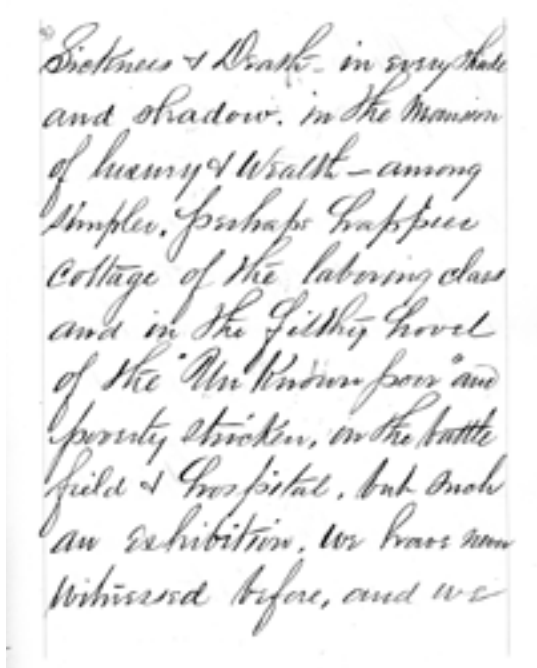 Sickness & Death - in every shade
and shadow. in the Mansion
of luxury & Wealth - among
simpler, perhaps happier
cottage of the laboring class
and in the filthy hovel
of the "Unknown poor" and
poverty stricken, on the battle
field & hospital, but such
an exhibition, we have never
witnessed before, and we